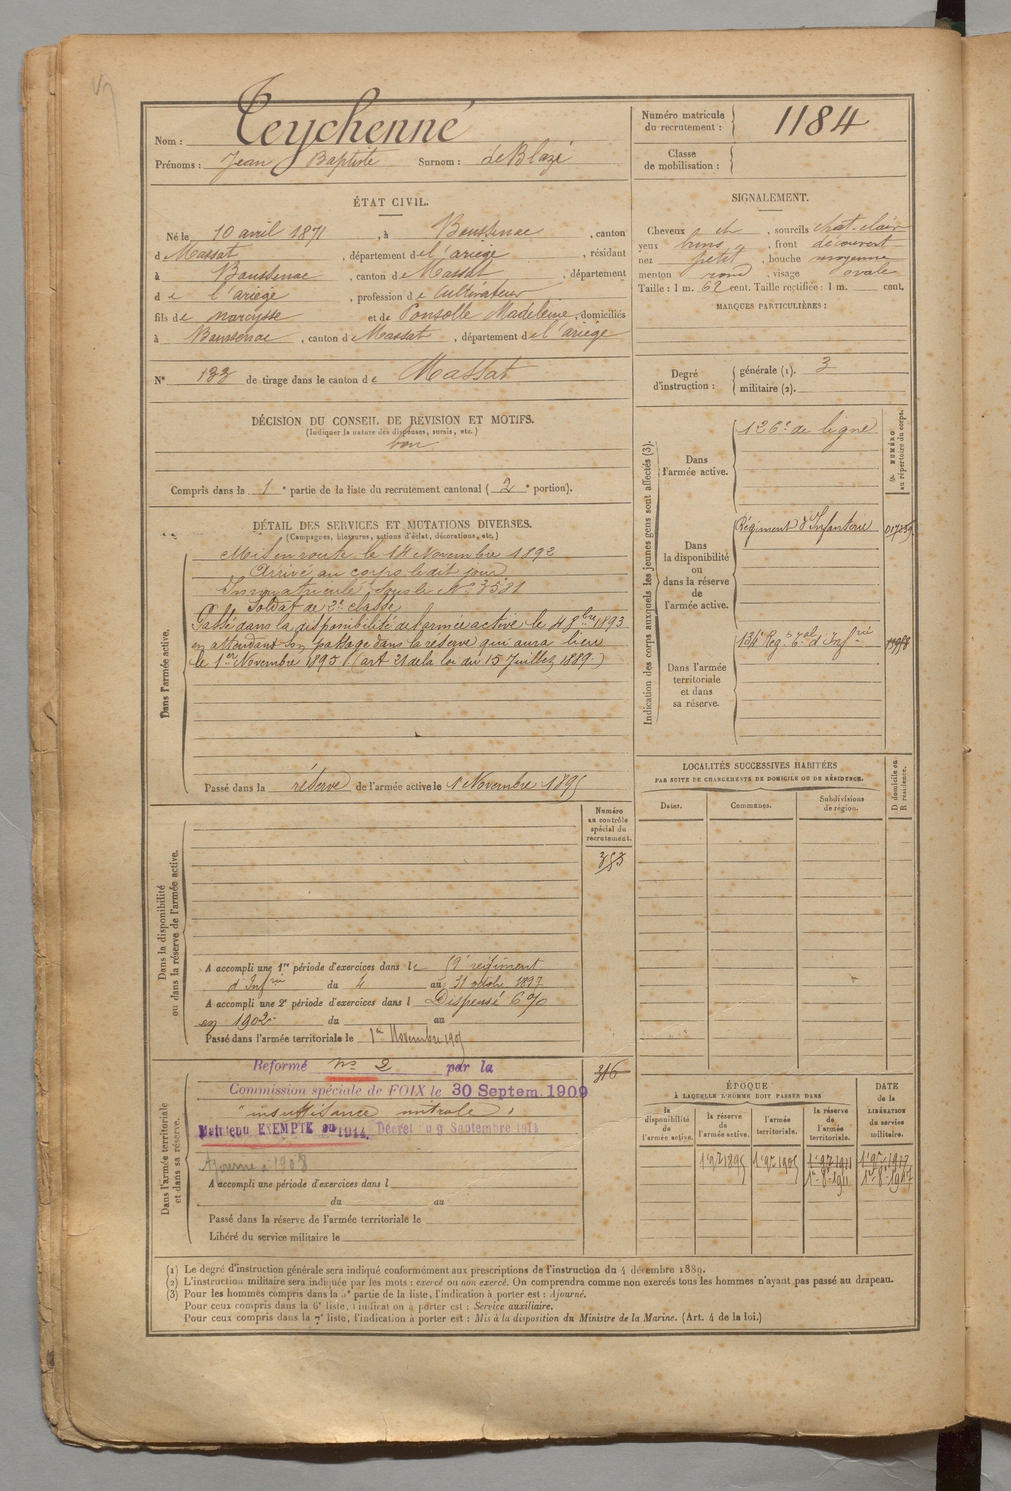 Nom : Teychenné
Prénoms : Jean Baptiste Surnom : de Blazé
Numéro matricule du recrutement : 1184
Classe de mobilisation :
ÉTAT CIVIL.
Né le 10 avril 1871, à Boussenac, canton
de Massat, département de l'ariège, résidant
à Boussenac, canton de Massat, département
de l'ariège, profession de Cultivateur
fils de Narcysse et de Ponsolle Madeleine, domiciliés
à Boussenac, canton de Massat, département de l'ariège
N° 133 de tirage dans le canton de Massat
SIGNALEMENT.
Cheveux et, sourcils chat-clair
yeux bruns, front découvert
nez petit, bouche moyenne
menton rond, visage ovale
Taille : 1 m. 62 cent. Taille rectifiée : 1 m. cent.
MARQUES PARTICULIÈRES :
Degré d'instruction : générale (1). 3
militaire (2).
DÉCISION DU CONSEIL DE RÉVISION ET MOTIFS.
(Indiquer la nature des dispenses, sursis, etc.)
bon
Compris dans la 1e partie de la liste du recrutement cantonal (2e portion).
DÉTAIL DES SERVICES ET MUTATIONS DIVERSES.
(Campagnes, blessures, actions d'éclat, décorations, etc.)
Dans l'armée active.
Mis en route le 14 Novembre 1892
Arrivé au corps le dit jour
Immatriculé sous le N° 3581
Soldat de 2e classe
Passé dans la disponibilité de l'armée active le 1893
en attendant son passage dans la réserve qui aura lieu
le 1er Novembre 1895 (art 21 de la loi du 15 Juillet 1889)
Passé dans la réserve de l'armée active le 1 Novembre 1895
Indication des corps auxquels les jeunes gens sont affectés (3).
NUMÉRO au répertoire du corps.
Dans l'armée active.
126e de ligne
Dans la disponibilité ou dans la réserve de l'armée active.
Régiment d'Infanterie
Dans l'armée territoriale et dans sa réserve.
LOCALITÉS SUCCESSIVES HABITÉES
PAR SUITE DE CHANGEMENTS DE DOMICILE OU DE RÉSIDENCE.
Dates. Communes. Subdivisions de région. D domicile ou R résidence.
Dans la disponibilité ou dans la réserve de l'armée active.
Numéro au contrôle spécial du recrutement.
353
A accompli une 1re période d'exercices dans le régiment
d'Infrie du 4 au 31 octobre 1897
A accompli une 2e période d'exercices dans l Dispensé 6%
en 1902 du au
Passé dans l'armée territoriale le 1er Novembre 1905
Dans l'armée territoriale et dans sa réserve.
316
Reformé n° 2 par la
Commission spéciale de FOIX le 30 Septem. 1909
"insuffisance mitrale"
Maintenu EXEMPTÉ en 1914, Décret du 9 Septembre 1914
Ajourné à 1908
A accompli une période d'exercices dans l
du au
Passé dans la réserve de l'armée territoriale le
Libéré du service militaire le
ÉPOQUE
À LAQUELLE L'HOMME DOIT PASSER DANS
la disponibilité de l'armée active.
la réserve de l'armée active.
l'armée territoriale.
la réserve de l'armée territoriale.
DATE de la LIBÉRATION du service militaire.
(1) Le degré d'instruction générale sera indiqué conformément aux prescriptions de l'instruction du 4 décembre 1889.
(2) L'instruction militaire sera indiquée par les mots : exercé ou non exercé. On comprendra comme non exercés tous les hommes n'ayant pas passé au drapeau.
(3) Pour les hommes compris dans la 5e partie de la liste, l'indication à porter est : Ajourné.
Pour ceux compris dans la 6e liste, l'indication à porter est : Service auxiliaire.
Pour ceux compris dans la 7e liste, l'indication à porter est : Mis à la disposition du Ministre de la Marine. (Art. 4 de la loi.)